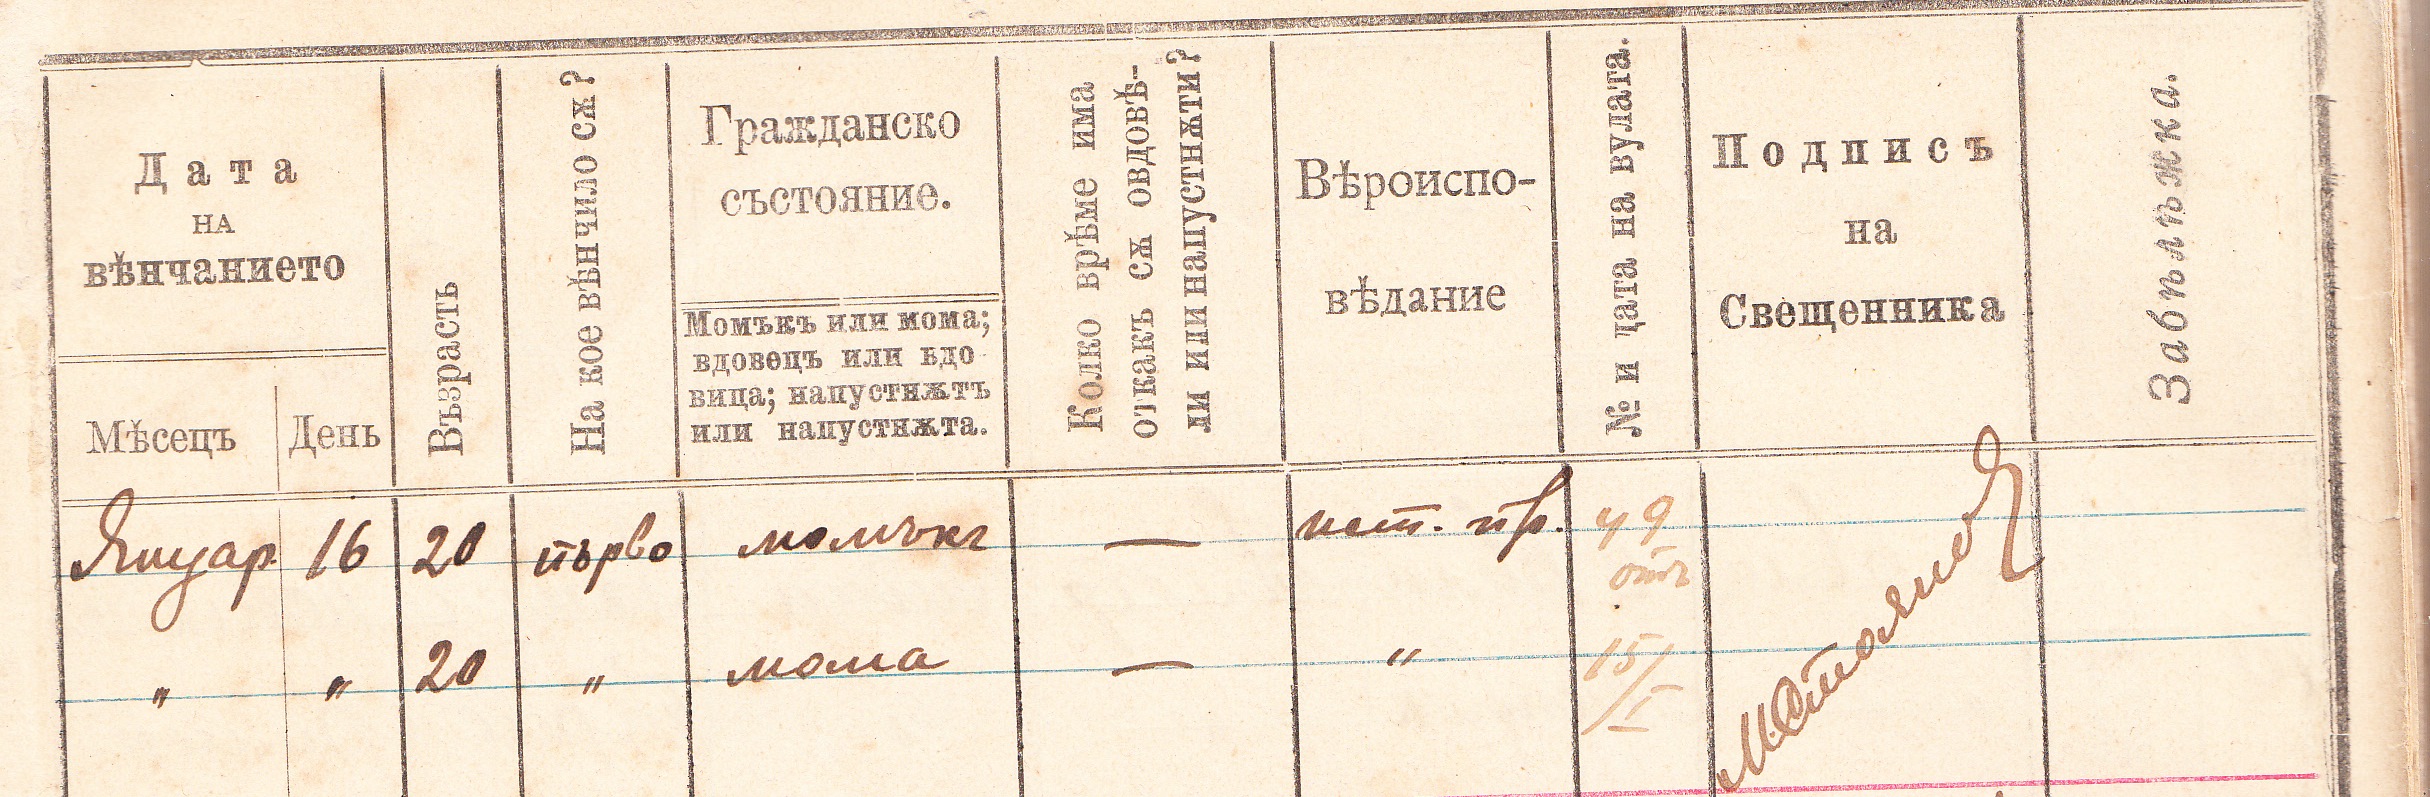 Дата
на
вѣнчанието
Мѣсецъ
День
Възрасть
На кое вѣнчило сѫ?
Гражданско
състояние.
Момъкъ или мома;
вдовецъ или вдо
вица; напустнѫтъ
или напустнѫта.
Колко врѣме има
откакъ сѫ овдовѣ-
ли или напустнѫти?
Вѣроиспо-
вѣдание
№ и дата на вулата.
Подписъ
на
Священника
Забѣлѣжка.
Януар. 16 20 първо момъкъ — ист. пр. 49
отъ
„ „ 20 „ мома — „ 15/I
М. Стоянов